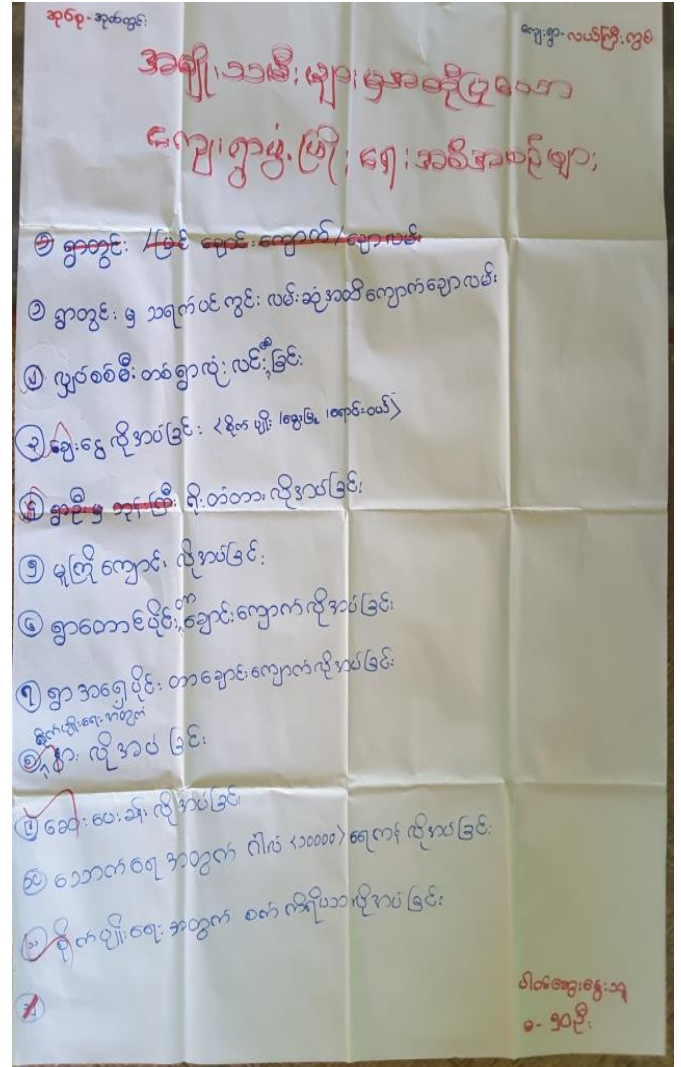 အုပ်စု - အုတ်တွင်း
ကျေးရွာ - လယ်ကြီးကွင်း
အမျိုးသမီးများမှအဆိုပြုသော
ကျေးရွာဖွံ့ဖြိုးရေးအစီအစဉ်များ
၁ ရွာတွင်း /မြင် ချောင်းကျောက်/ချောလမ်း
၁ ရွာတွင်းမှ သရက်ပင်ကွင်း လမ်းဆုံအထိကျောက်ချောလမ်း
၂ လျှပ်စစ်မီး တစ်ရွာလုံး လင်းခြင်း
၃ ချေးငွေ လိုအပ်ခြင်း (စိုက်ပျိုး/မွေးမြူ/ရောင်းဝယ်)
၄ ရွာဦးမှ ဘုန်းကြီး ရိုးတံတား လိုအပ်ခြင်း
၅ မူကြိုကျောင်း လိုအပ်ခြင်း
၆ ရွာတောင်ပိုင်း တာချောင်းကျောက်လိုအပ်ခြင်း
၇ ရွာအရှေ့ပိုင်း တာချောင်းကျောက်လိုအပ်ခြင်း
စိုက်ပျိုးရေးအတွက်
၈ နွား လိုအပ်ခြင်း
၉ ဆေးပေးခန်း လိုအပ်ခြင်း
၁၀ သောက်ရေအတွက် ဂါလံ (၁၀၀၀၀) ရေကန် လိုအပ်ခြင်း
၁၁ စိုက်ပျိုးရေးအတွက် စက်ကိရိယာလိုအပ်ခြင်း
ပါဝင်ဆွေးနွေးသူ
မ - ၅၀ဦး